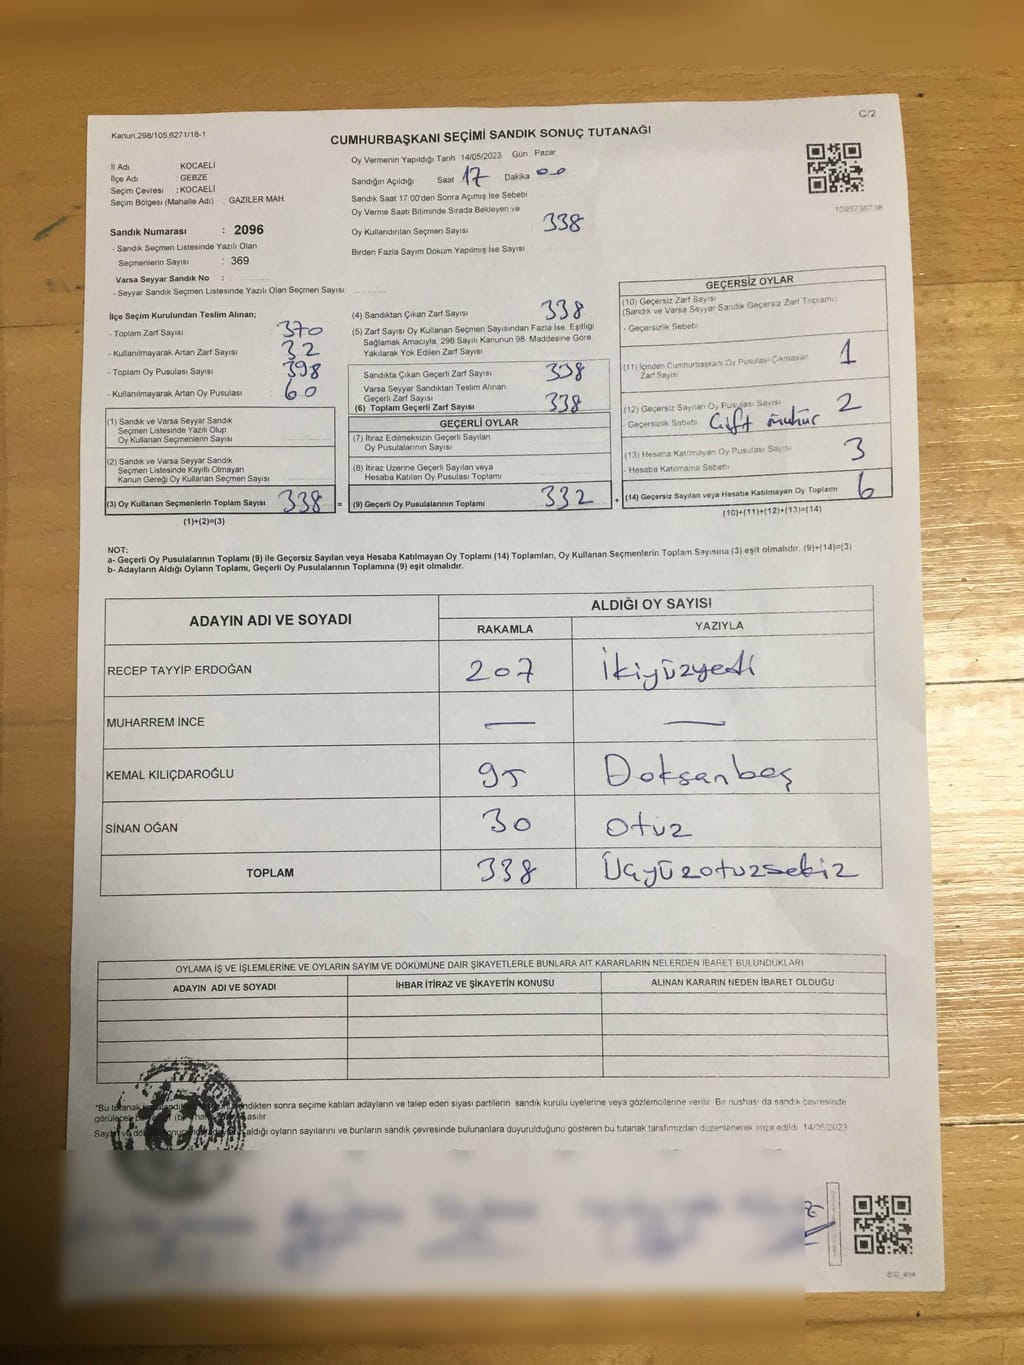 C/2
Kanun.298/105,6271/18-1
CUMHURBAŞKANI SEÇİMİ SANDIK SONUÇ TUTANAĞI
İl Adı : KOCAELİ
İlçe Adı : GEBZE
Seçim Çevresi : KOCAELİ
Seçim Bölgesi (Mahalle Adı) : GAZİLER MAH.
Oy Vermenin Yapıldığı Tarih 14/05/2023 Gün Pazar
Sandığın Açıldığı Saat 17 Dakika 00
Sandık Saat 17:00'den Sonra Açımış İse Sebebi
Oy Verme Saati Bitiminde Sırada Bekleyen ve
Oy Kullandırılan Seçmen Sayısı 338
Birden Fazla Sayım Döküm Yapılmış İse Sayısı
Sandık Numarası : 2096
- Sandık Seçmen Listesinde Yazılı Olan
Seçmenlerin Sayısı : 369
Varsa Seyyar Sandık No :
- Seyyar Sandık Seçmen Listesinde Yazılı Olan Seçmen Sayısı
İlçe Seçim Kurulundan Teslim Alınan;
- Toplam Zarf Sayısı 370
- Kullanılmayarak Artan Zarf Sayısı 32
- Toplam Oy Pusulası Sayısı 398
- Kullanılmayarak Artan Oy Pusulası 60
(1) Sandık ve Varsa Seyyar Sandık
Seçmen Listesinde Yazılı Olup
Oy Kullanan Seçmenlerin Sayısı
(2) Sandık ve Varsa Seyyar Sandık
Seçmen Listesinde Kayıtlı Olmayan
Kanun Gereği Oy Kullanan Seçmen Sayısı
(3) Oy Kullanan Seçmenlerin Toplam Sayısı 338 =
(1)+(2)=(3)
(4) Sandıktan Çıkan Zarf Sayısı 338
(5) Zarf Sayısı Oy Kullanan Seçmen Sayısından Fazla İse, Eşitliği
Sağlamak Amacıyla, 298 Sayılı Kanunun 98. Maddesine Göre
Yakılarak Yok Edilen Zarf Sayısı
Sandıkta Çıkan Geçerli Zarf Sayısı 338
Varsa Seyyar Sandıktan Teslim Alınan
Geçerli Zarf Sayısı
(6) Toplam Geçerli Zarf Sayısı 338
GEÇERLİ OYLAR
(7) İtiraz Edilmeksizin Geçerli Sayılan
Oy Pusulalarının Sayısı
(8) İtiraz Üzerine Geçerli Sayılan veya
Hesaba Katılan Oy Pusulası Toplamı
(9) Geçerli Oy Pusulalarının Toplamı 332 +
GEÇERSİZ OYLAR
(10) Geçersiz Zarf Sayısı
(Sandık ve Varsa Seyyar Sandık Geçersiz Zarf Toplamı)
- Geçersizlik Sebebi
(11) İçinden Cumhurbaşkanı Oy Pusulası Çıkmayan
Zarf Sayısı 1
(12) Geçersiz Sayılan Oy Pusulası Sayısı 2
- Geçersizlik Sebebi Çift mühür
(13) Hesaba Katılmayan Oy Pusulası Sayısı 3
- Hesaba Katılmama Sebebi
(14) Geçersiz Sayılan veya Hesaba Katılmayan Oy Toplamı 6
(10)+(11)+(12)+(13)=(14)
NOT:
a- Geçerli Oy Pusulalarının Toplamı (9) ile Geçersiz Sayılan veya Hesaba Katılmayan Oy Toplamı (14) Toplamları, Oy Kullanan Seçmenlerin Toplam Sayısına (3) eşit olmalıdır. (9)+(14)=(3)
b- Adayların Aldığı Oyların Toplamı, Geçerli Oy Pusulalarının Toplamına (9) eşit olmalıdır.
ADAYIN ADI VE SOYADI
ALDIĞI OY SAYISI
RAKAMLA YAZIYLA
RECEP TAYYİP ERDOĞAN 207 İkiyüzyedi
MUHARREM İNCE — —
KEMAL KILIÇDAROĞLU 95 Doksanbeş
SİNAN OĞAN 30 otuz
TOPLAM 338 Üçyüzotuzsekiz
OYLAMA İŞ VE İŞLEMLERİNE VE OYLARIN SAYIM VE DÖKÜMÜNE DAİR ŞİKAYETLERLE BUNLARA AİT KARARLARIN NELERDEN İBARET BULUNDUKLARI
ADAYIN ADI VE SOYADI İHBAR İTİRAZ VE ŞİKAYETİN KONUSU ALINAN KARARIN NEDEN İBARET OLDUĞU
"Bu tutanak sonra seçime katılan adayların ve talep eden siyasi partilerin sandık kurulu üyelerine veya gözlemcilerine verilir. Bir nüshası da sandık çevresinde
görülecek asılır.
aldığı oyların sayılarını ve bunların sandık çevresinde bulunanlara duyurulduğunu gösteren bu tutanak tarafımızdan düzenlenerek imza edildi. 14/05/2023